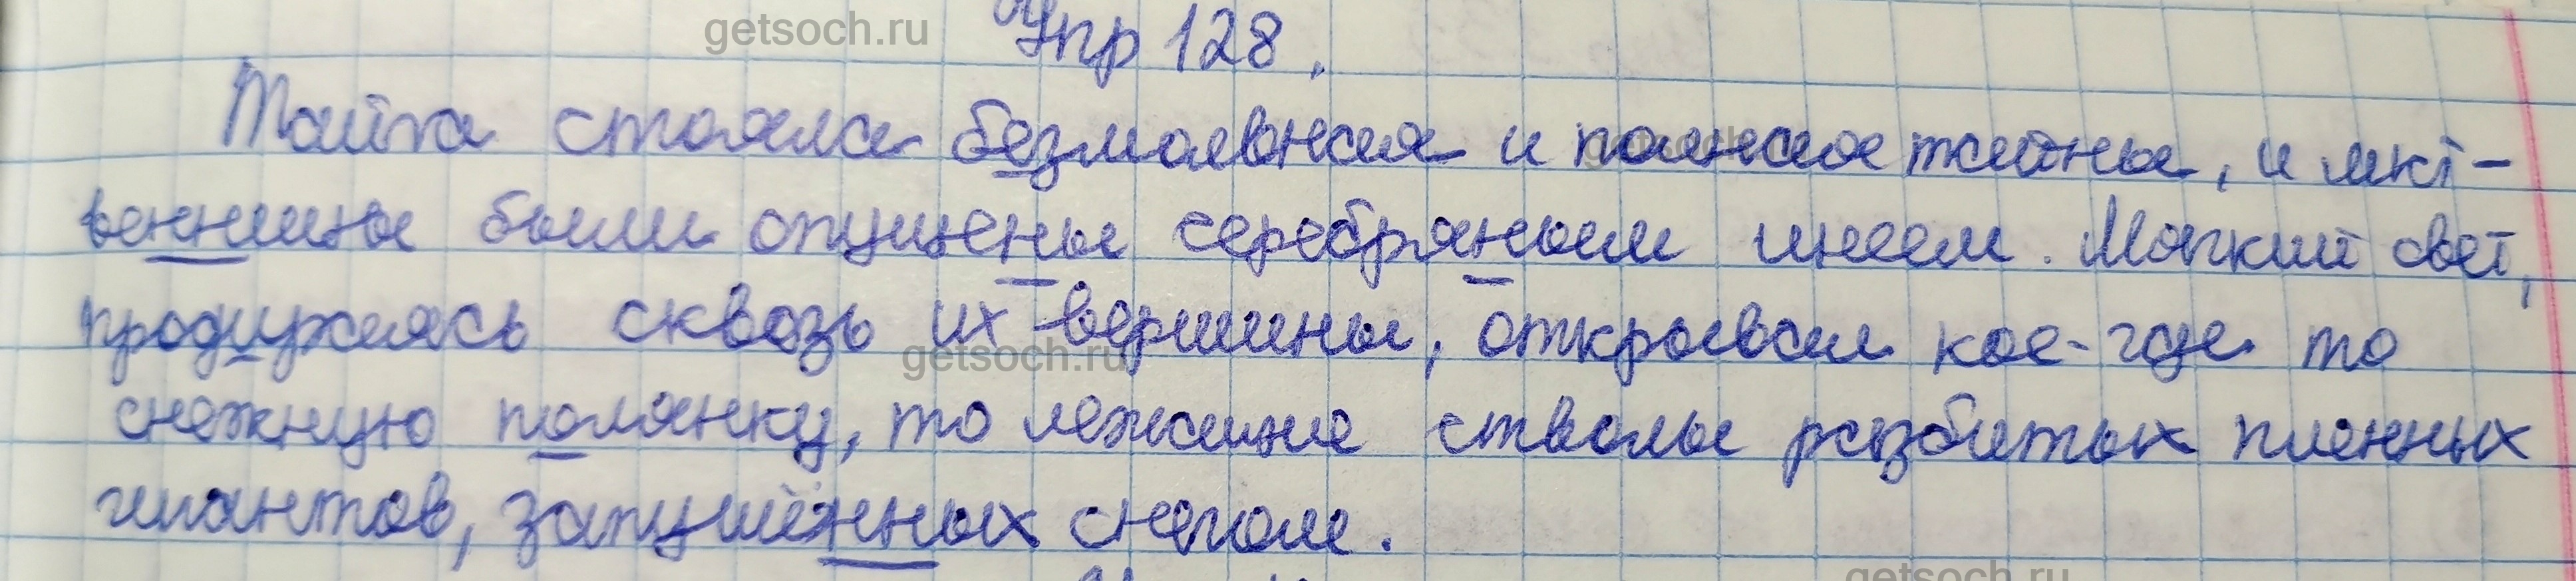 getsoch.ru
Упр 128.
Тайга стояла безмолвная и полная тайны, и лист-
венницы были опущены серебряным инеем. Мягкий свет,
продиужаясь сквозь их вершины, открывал кое-где то
getsoch.ru
снежную полянку, то лежащие стволы разбитых пленных
гигантов, запушённых снегом.
getsoch.ru